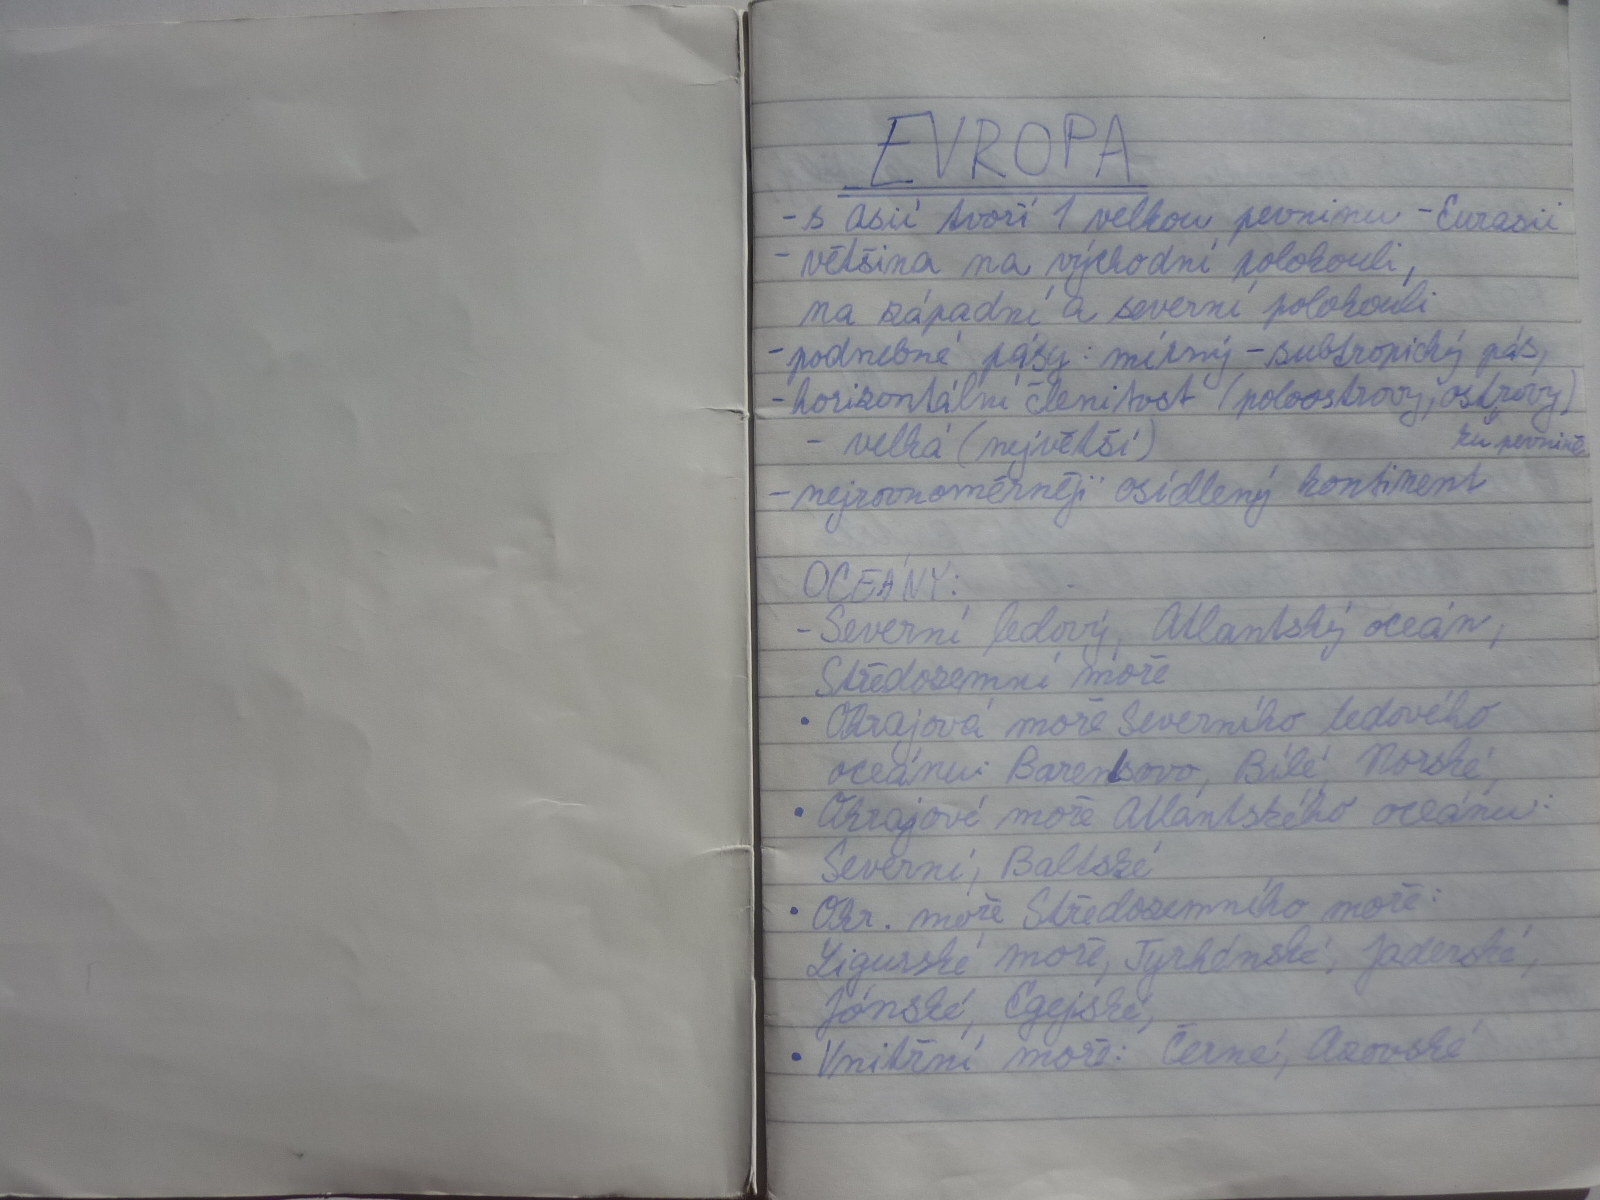 EVROPA
- s Asií tvoří 1 velkou pevninu - Eurasii
- většina na východní polokouli,
na západní a severní polokouli
- podnebné pásy: mírný - subtropický pás,
- horizontální členitost (poloostrovy, ostrovy)
- velká (největší) ku pevnině
- nejrovnoměrněji osídlený kontinent
OCEÁNY:
- Severní ledový, Atlantský oceán,
Středozemní moře
• Okrajová moře Severního ledového
oceánu: Barentsovo, Bílé, Norské,
• Okrajové moře Atlantského oceánu:
Severní, Baltské
• Okr. moře Středozemního moře:
Ligurské moře, Tyrhénské, Jaderské,
Jónské, Egejské,
• Vnitřní moře: Černé, Azovské